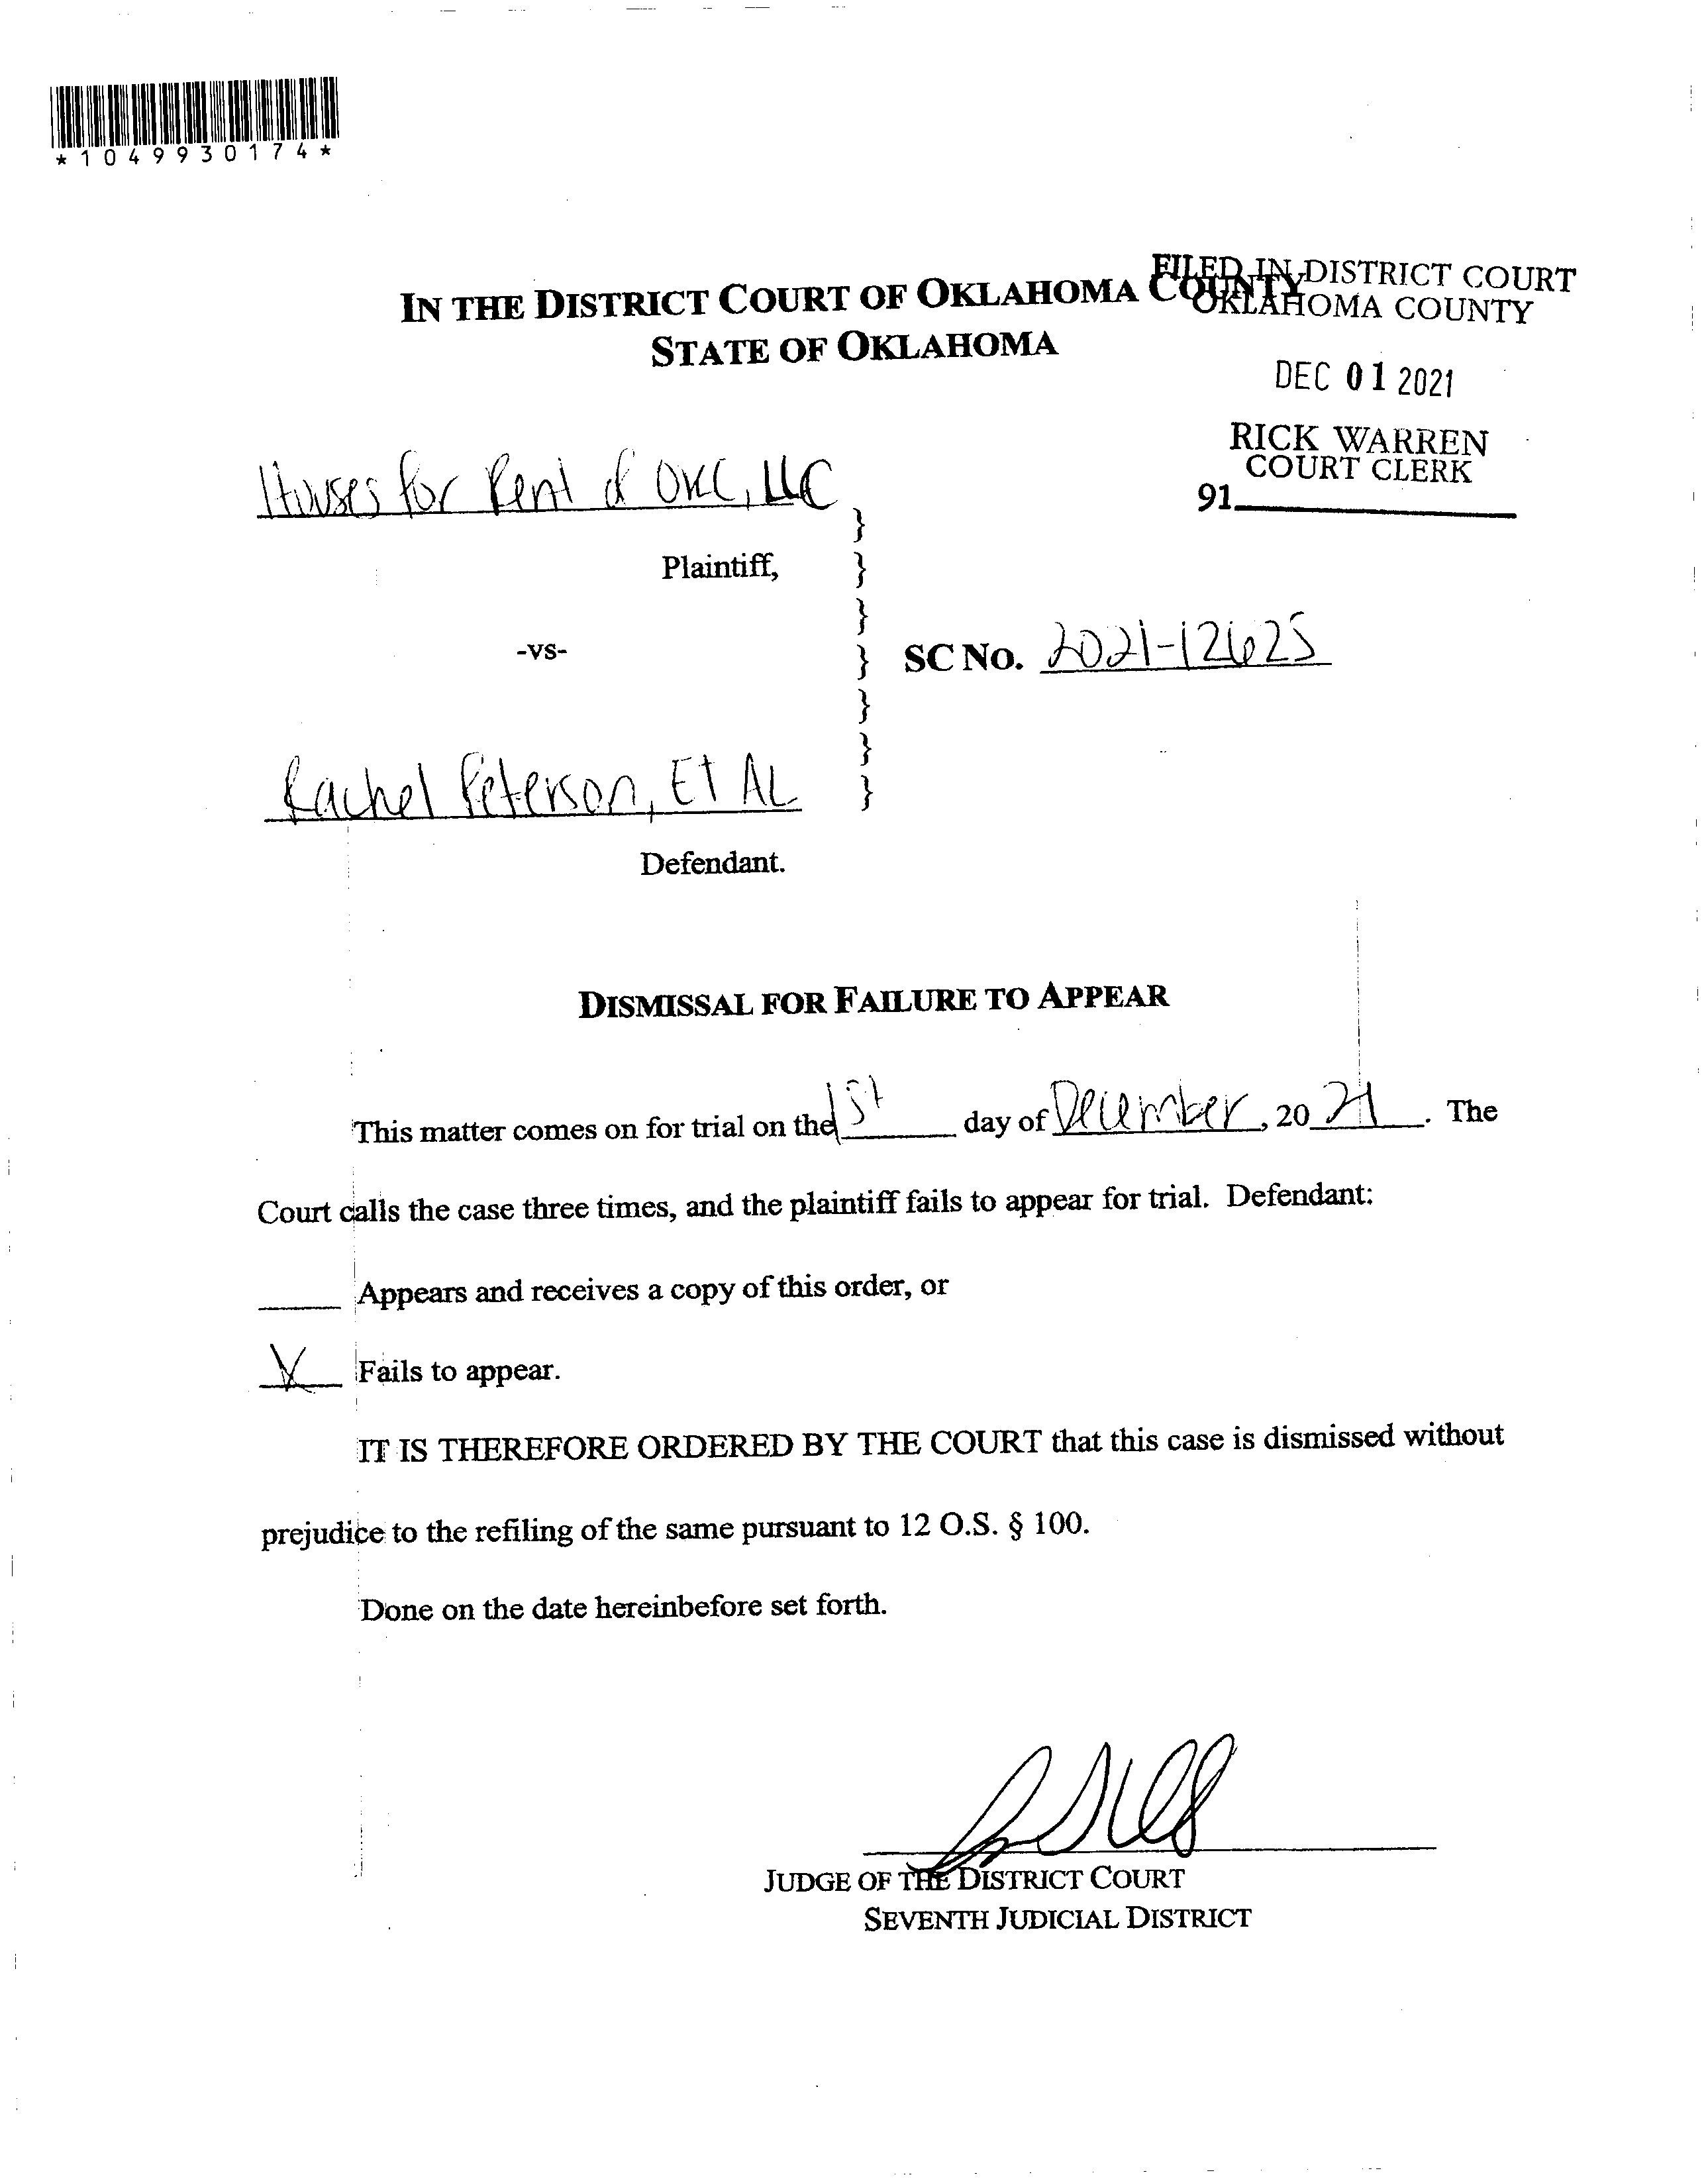 *1049930174*
FILED IN DISTRICT COURT
OKLAHOMA COUNTY
IN THE DISTRICT COURT OF OKLAHOMA COUNTY
STATE OF OKLAHOMA
DEC 01 2021
RICK WARREN
COURT CLERK
91
Houses for Rent of OKC, LLC
Plaintiff,
-vs-
SC NO. 2021-12625
Rachel Peterson, ET AL
Defendant.
DISMISSAL FOR FAILURE TO APPEAR
This matter comes on for trial on the 1st day of December, 2021. The
Court calls the case three times, and the plaintiff fails to appear for trial. Defendant:
Appears and receives a copy of this order, or
X Fails to appear.
IT IS THEREFORE ORDERED BY THE COURT that this case is dismissed without
prejudice to the refiling of the same pursuant to 12 O.S. § 100.
Done on the date hereinbefore set forth.
JUDGE OF THE DISTRICT COURT
SEVENTH JUDICIAL DISTRICT